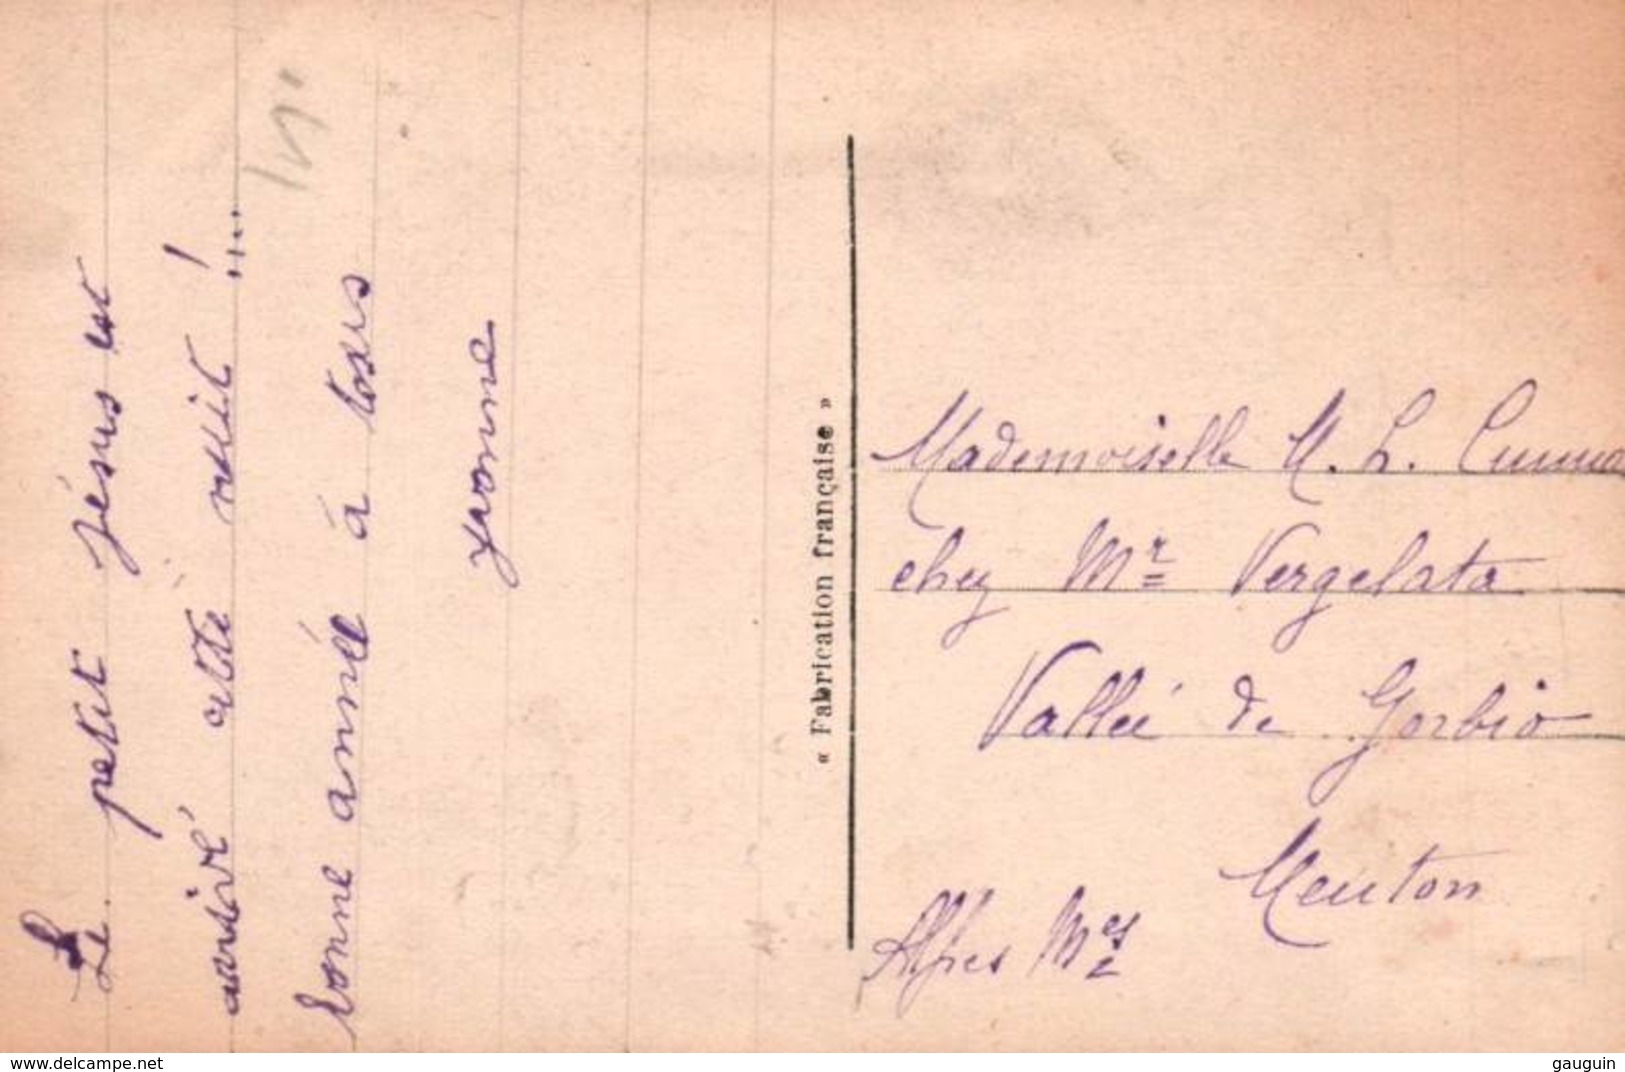 Le petit Jésus est
arrivé cette nuit !...
bonne année à tous
yvonne
« Fabrication française »
Mademoiselle M. L.
chez Mr Vergelata
Vallée de Gorbio
Menton
Alpes Mes
www.delcampe.net
gauguin